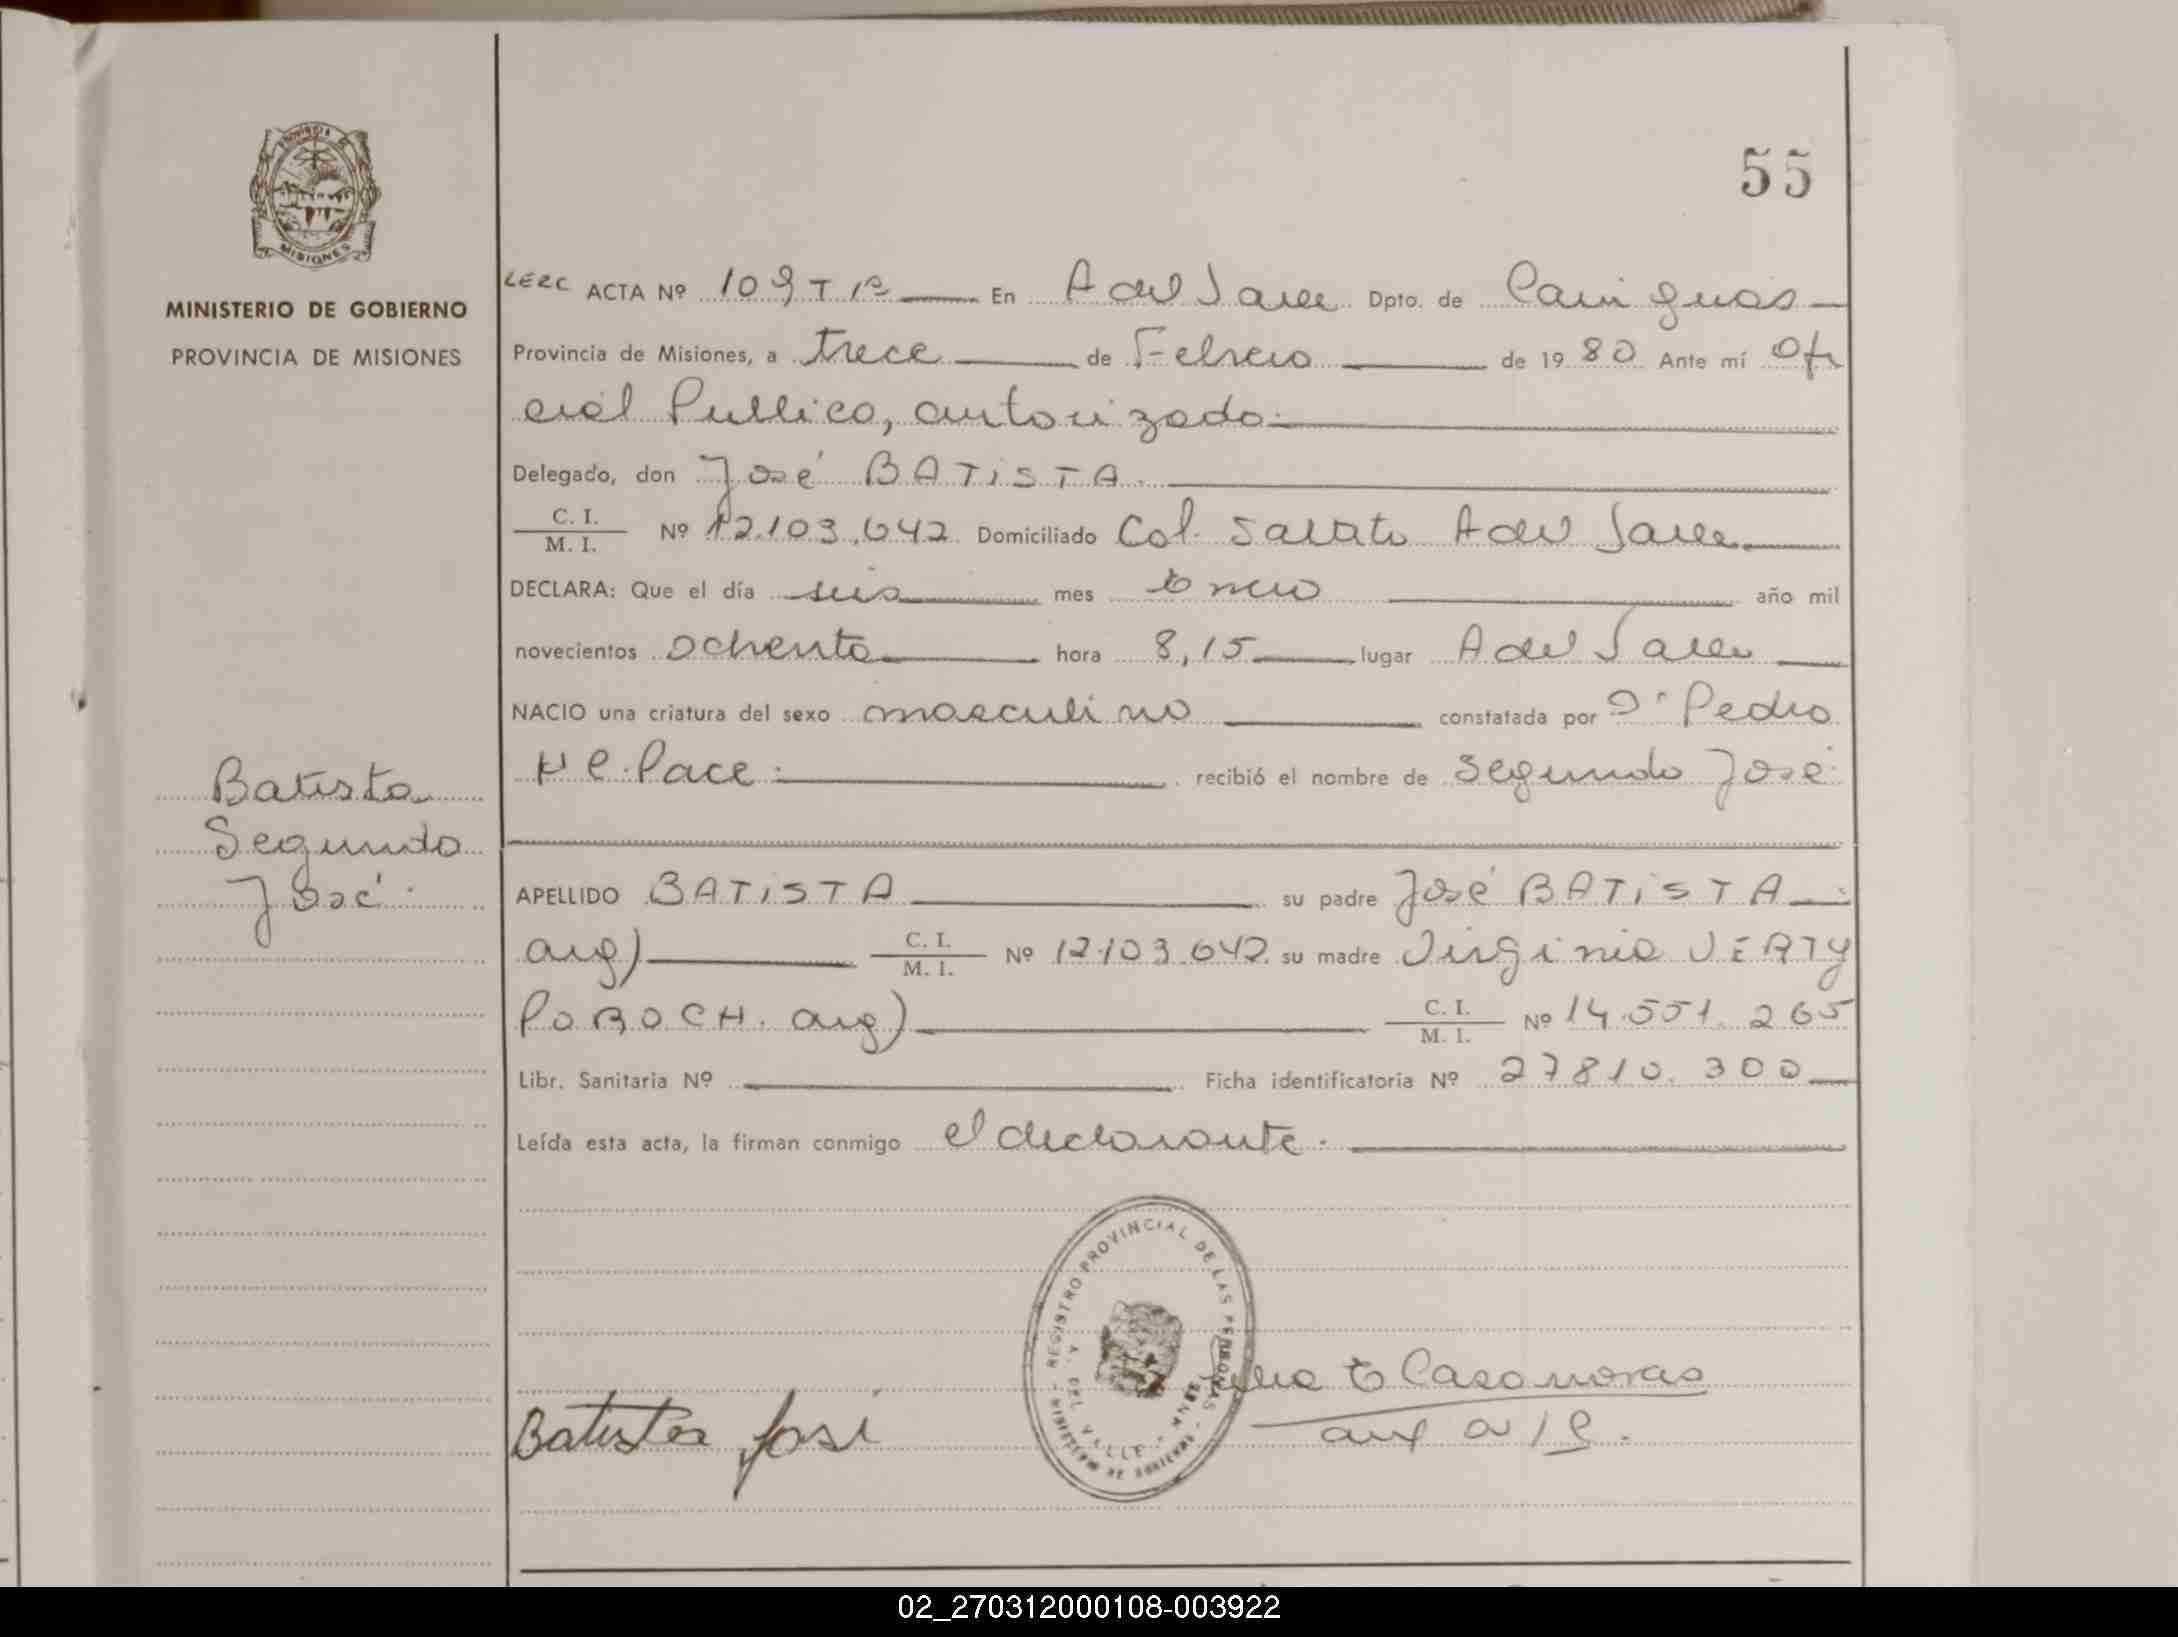 55
PROVINCIA
MISIONES
MINISTERIO DE GOBIERNO
PROVINCIA DE MISIONES
LERC ACTA Nº 109 T 1º En A del Valle Dpto. de Cainguás
Provincia de Misiones, a trece de Febrero de 1980 Ante mí Ofi
cial Publico, autorizado
Delegado, don José BATISTA.
C. I.
M. I. Nº 12.103.642 Domiciliado Col. Salto A del Valle
DECLARA: Que el día seis mes Enero año mil
novecientos ochenta hora 8,15 lugar A del Valle
NACIO una criatura del sexo masculino constatada por Dr Pedro
Pace recibió el nombre de Segundo José
Batista
Segundo
José
APELLIDO BATISTA su padre José BATISTA
arg) C. I.
M. I. Nº 12.103.642 su madre Virginia
POBOCH. arg) C. I.
M. I. Nº 14.551.265
Libr. Sanitaria Nº Ficha identificatoria Nº 27810.300
Leída esta acta, la firman conmigo el declarante.
REGISTRO PROVINCIAL DE LAS PERSONAS
MINISTERIO DE GOBIERNO
DEL VALLE
Batista José
E Casamoras
02_270312000108-003922